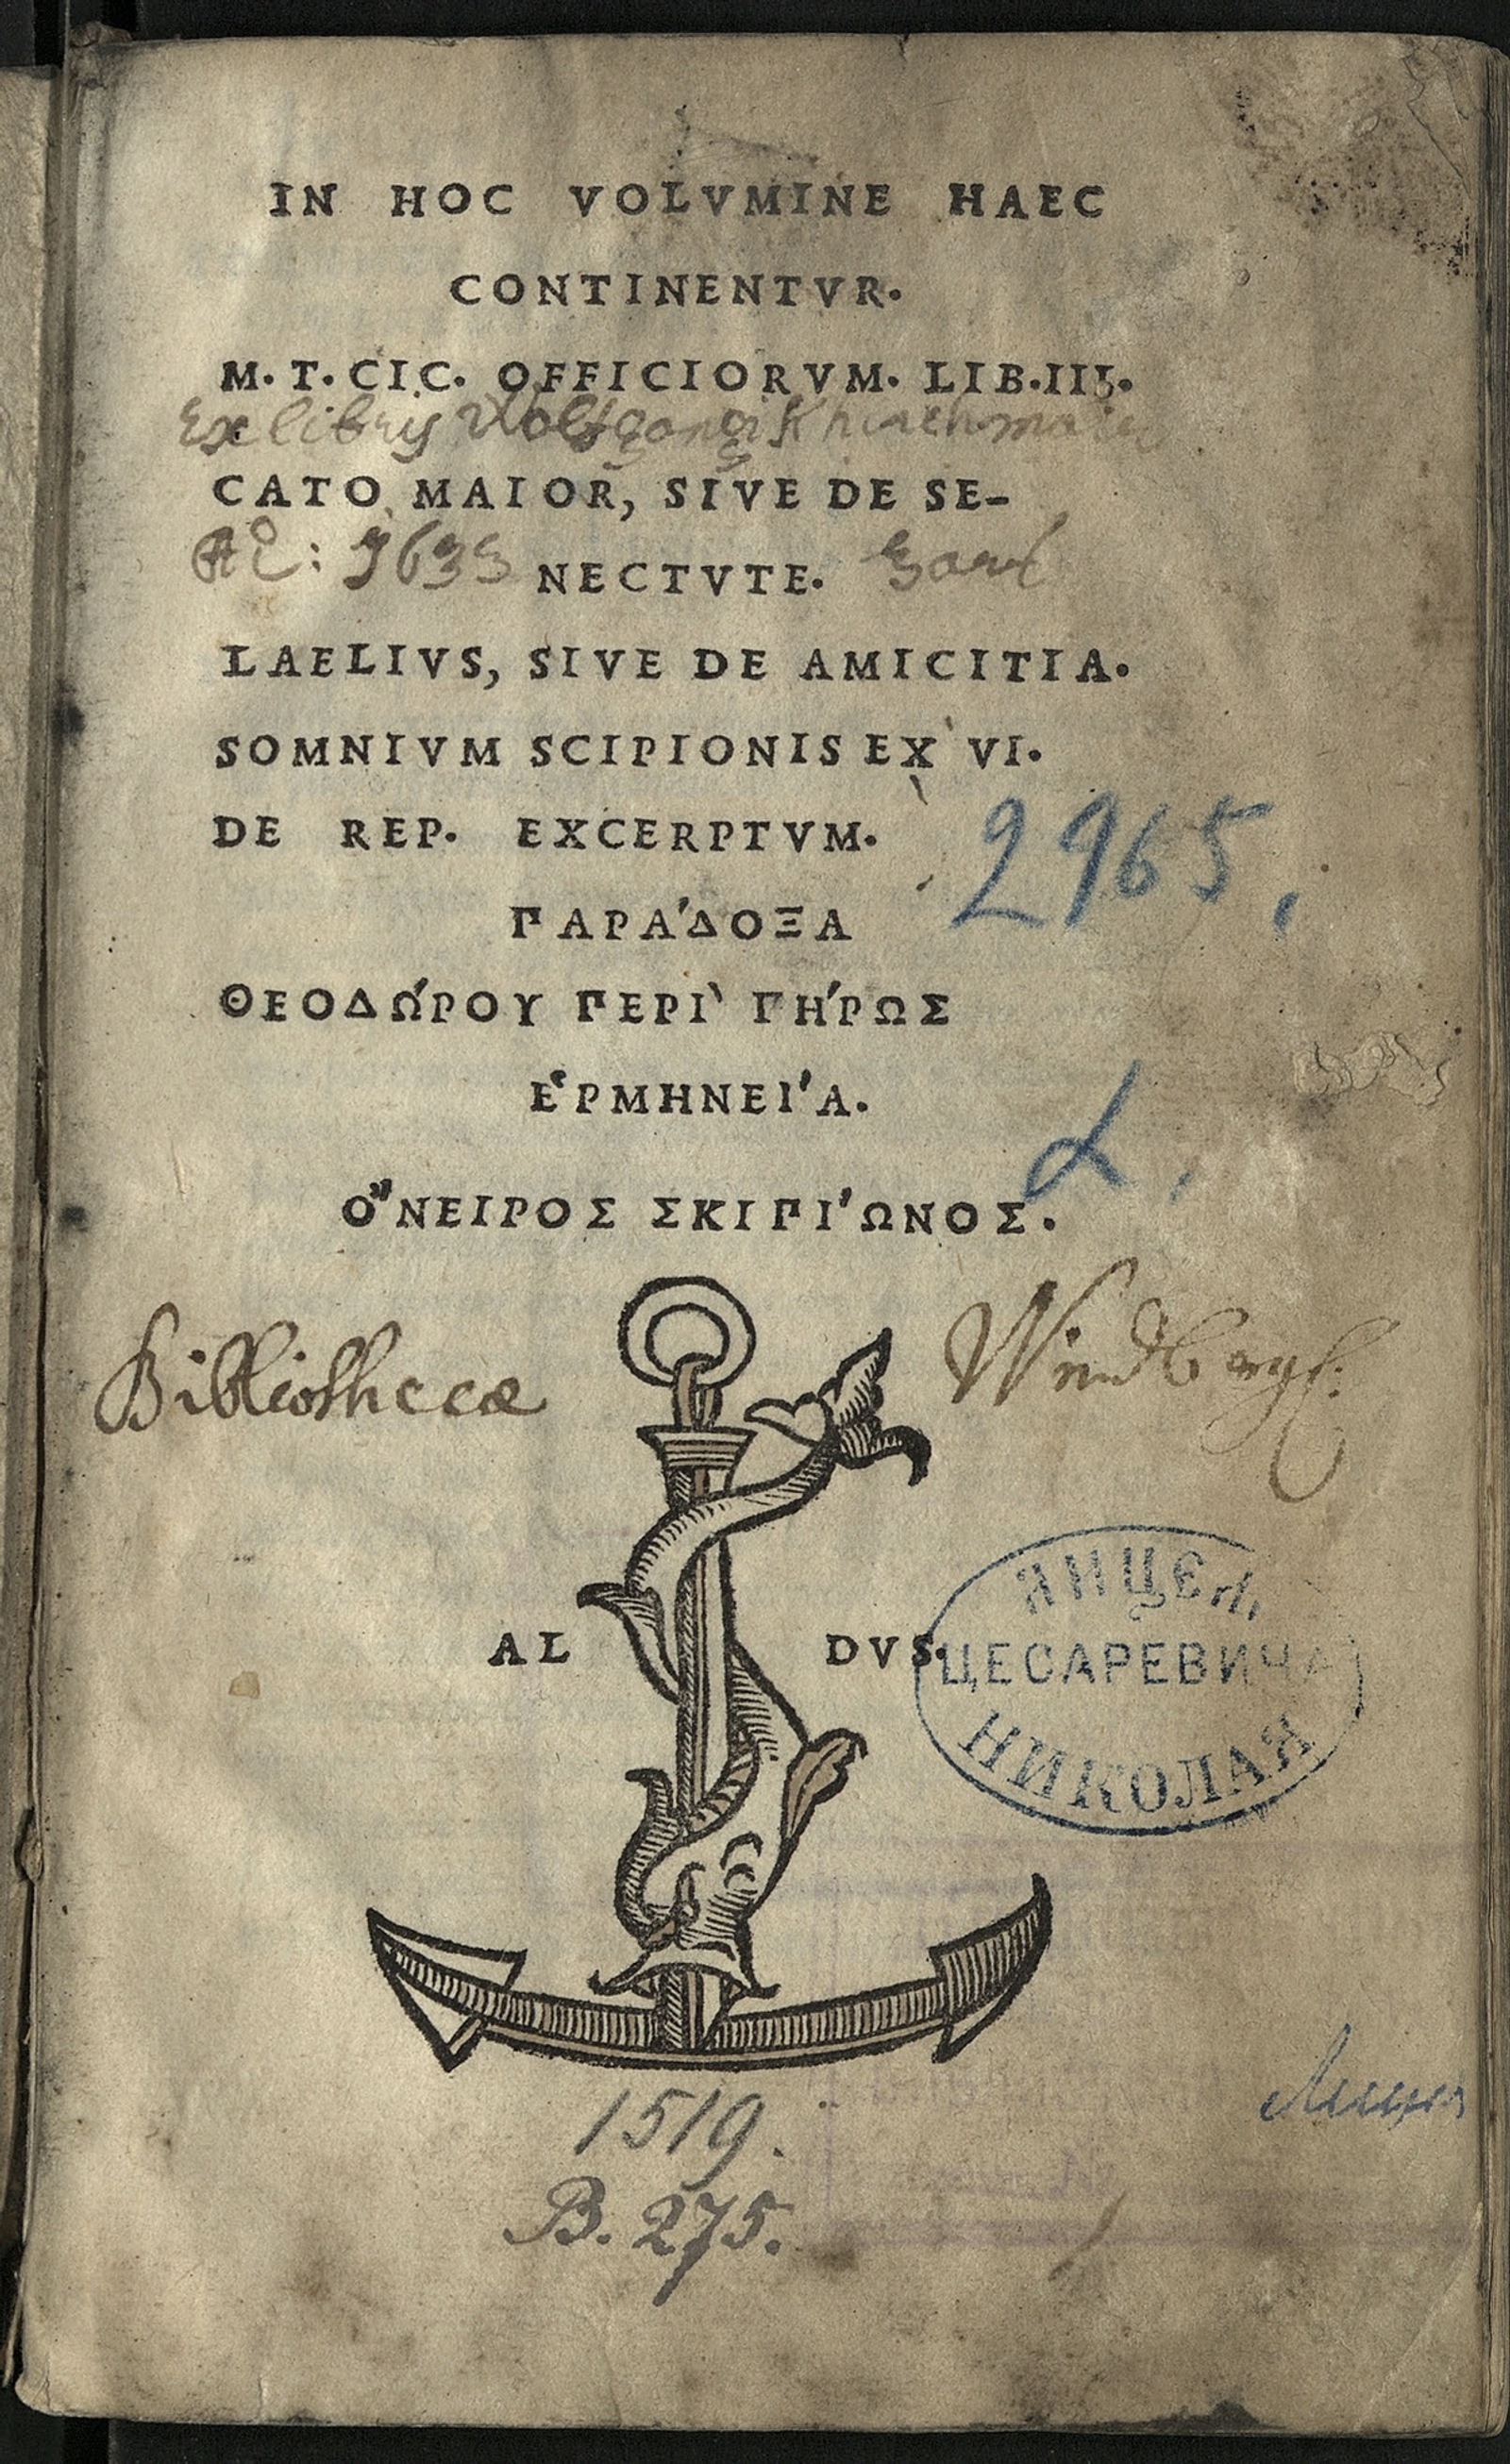 IN HOC VOLVMINE HAEC
CONTINENTVR.
M. T. CIC. OFFICIORVM. LIB. III.
Ex librys Wolfgangi
CATO MAIOR, SIVE DE SE-
NECTVTE.
LAELIVS, SIVE DE AMICITIA.
SOMNIVM SCIPIONIS EX VI.
DE REP. EXCERPTVM.
2965.
ΠΑΡΆΔΟΞΑ
ΘΕΟΔΏΡΟΥ ΠΕΡῚ ΓΉΡΩΣ
ἙΡΜΗΝΕΊΑ.
L.
ὌΝΕΙΡΟΣ ΣΚΙΠΊΩΝΟΣ.
Bibliothecæ Windberg:
ЛИЦЕЙ
AL DVS.
ЦЕСАРЕВИЧА
НИКОЛАЯ
1519.
B. 275.